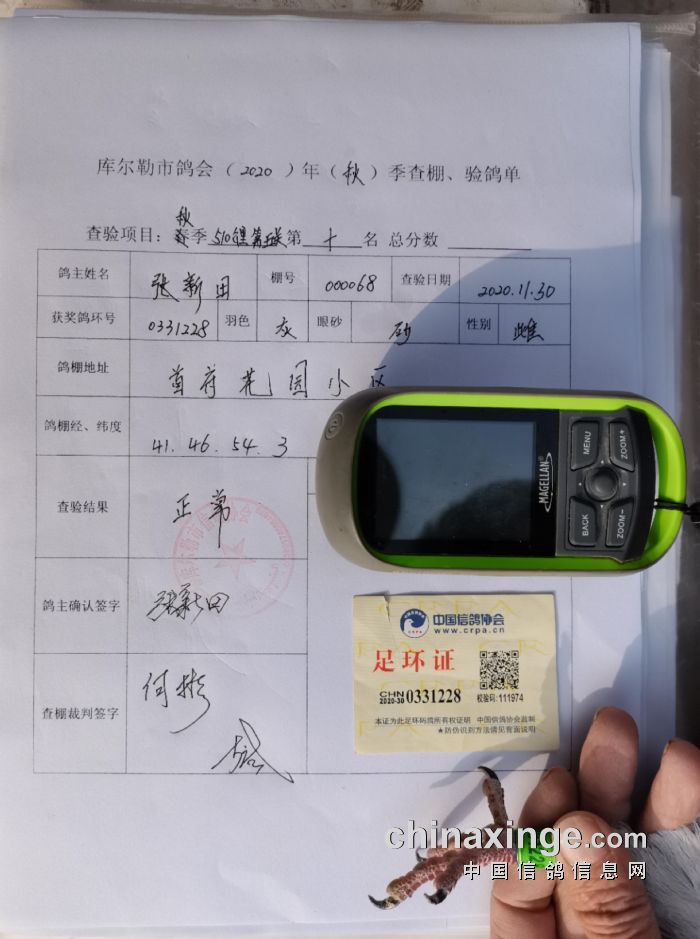 库尔勒市鸽会（2020）年（秋）季查棚、验鸽单
秋
查验项目：春季 510 第十名 总分数
鸽主姓名 张新田 棚号 000068 查验日期 2020.11.30
获奖鸽环号 0331228 羽色 灰 眼砂 砂 性别 雌
鸽棚地址 首府花园小区
鸽棚经、纬度 41.46.54.3
查验结果 正常
鸽主确认签字 张新田
查棚裁判签字 何彬
MAGELLAN
MENU
ZOOM+
BACK
ZOOM-
CRPA
中国信鸽协会
www.crpa.cn
足环证
CHN
2020-30 0331228
校验码:111974
本证为此足环码鸽所有权证明 中国信鸽协会监制
★防伪识别方法请见背面说明
chinaxinge.com
中国信鸽信息网